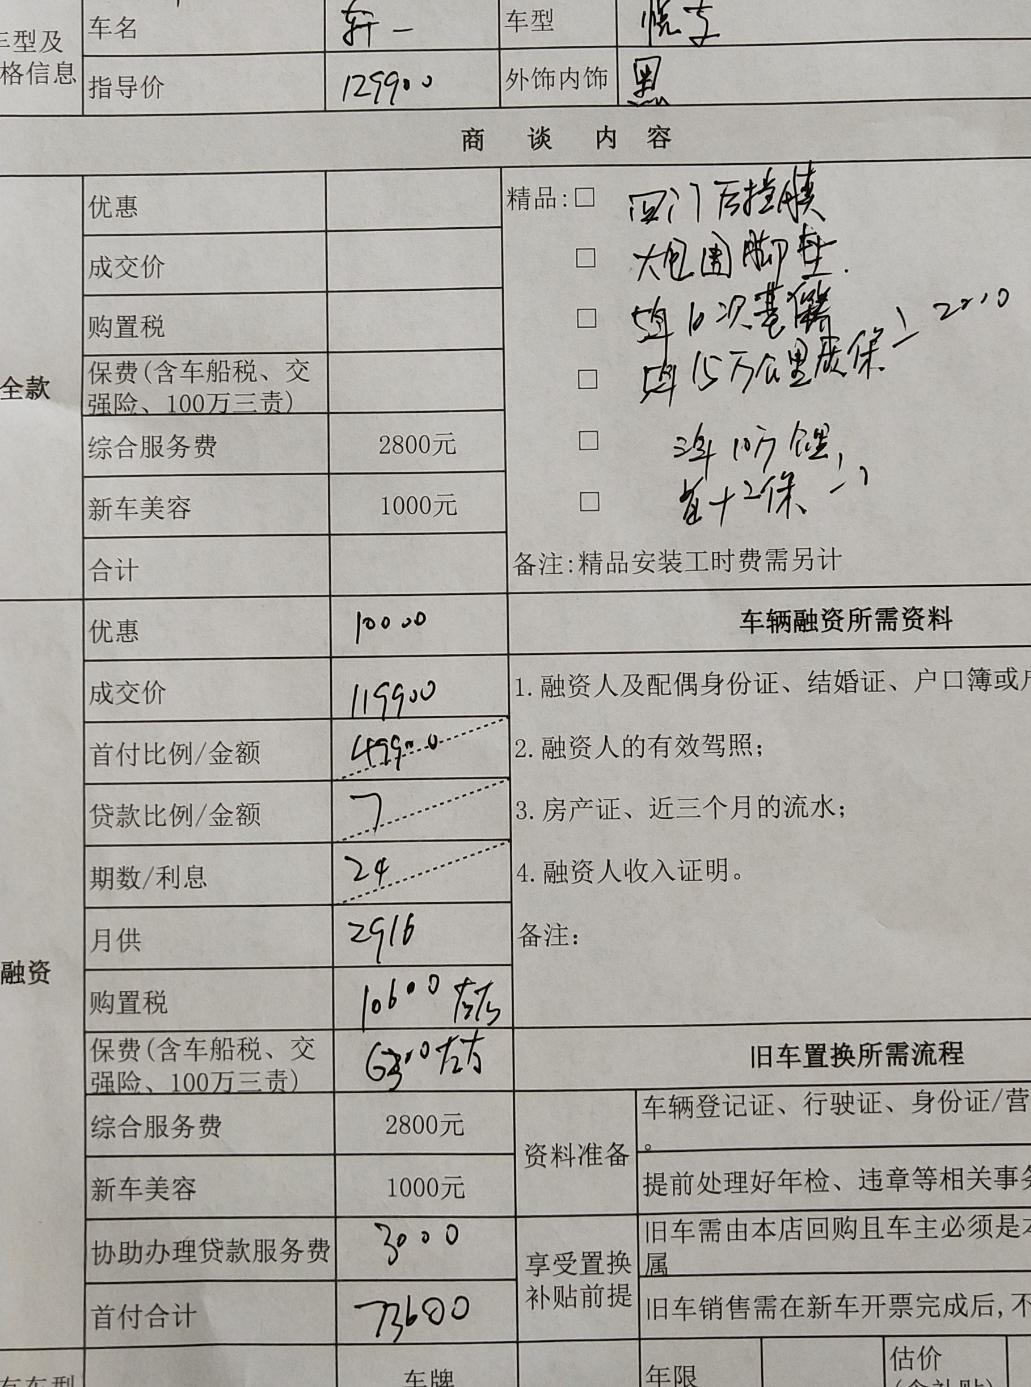 车名 轩一 车型 悦享
车型及
格信息
指导价 129900 外饰内饰 黑
商 谈 内 容
优惠 精品:□ 四门后挡膜
成交价 □ 大包围脚垫.
购置税 □ 5年10次基保 2000
全款
保费(含车船税、交
强险、100万三责) □ 5年15万公里质保
综合服务费 2800元 □ 三年10万公里
新车美容 1000元 □ 首+2保
合计 备注:精品安装工时费需另计
优惠 10000 车辆融资所需资料
成交价 119900 1.融资人及配偶身份证、结婚证、户口簿或
首付比例/金额 49900 2.融资人的有效驾照;
贷款比例/金额 7 3.房产证、近三个月的流水;
期数/利息 24 4.融资人收入证明。
月供 2916 备注:
融资
购置税 10600 左右
保费(含车船税、交
强险、100万三责) 6300左右 旧车置换所需流程
综合服务费 2800元 资料准备 车辆登记证、行驶证、身份证/营
。
新车美容 1000元 提前处理好年检、违章等相关事务
协助办理贷款服务费 3000 享受置换
补贴前提 旧车需由本店回购且车主必须是本
属
首付合计 73600 旧车销售需在新车开票完成后,不
车牌 年限 估价